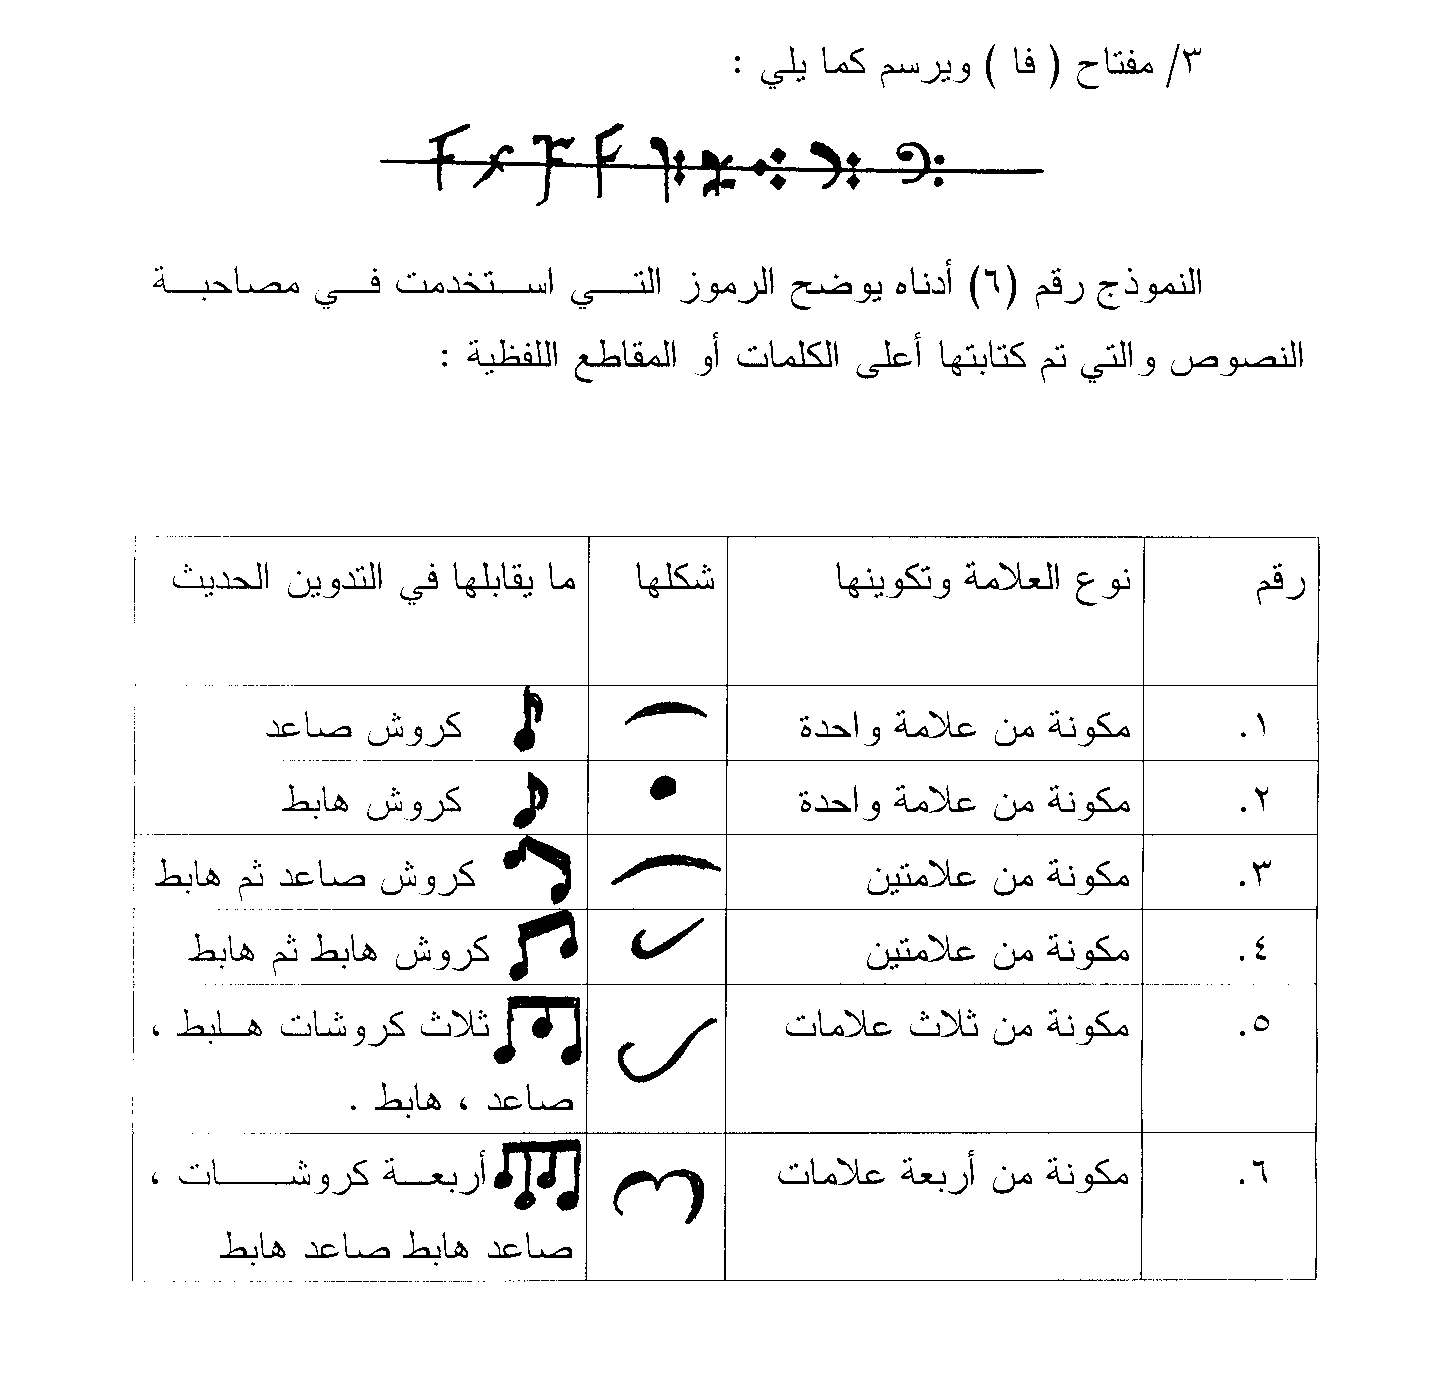 ٣/ مفتاح ( فا ) ويرسم كما يلي :
النموذج رقم (٦) أدناه يوضح الرموز التـــي استـخدمت فـــي مصاحبـــة
النصوص والتي تم كتابتها أعلى الكلمات أو المقاطع اللفظية :
رقم نوع العلامة وتكوينها شكلها ما يقابلها في التدوين الحديث
١. مكونة من علامة واحدة كروش صاعد
٢. مكونة من علامة واحدة كروش هابط
٣. مكونة من علامتين كروش صاعد ثم هابط
٤. مكونة من علامتين كروش هابط ثم هابط
٥. مكونة من ثلاث علامات ثلاث كروشات هـلبط ،
صاعد ، هابط .
٦. مكونة من أربعة علامات أربعـــة كروشـــــات ،
صاعد هابط صاعد هابط